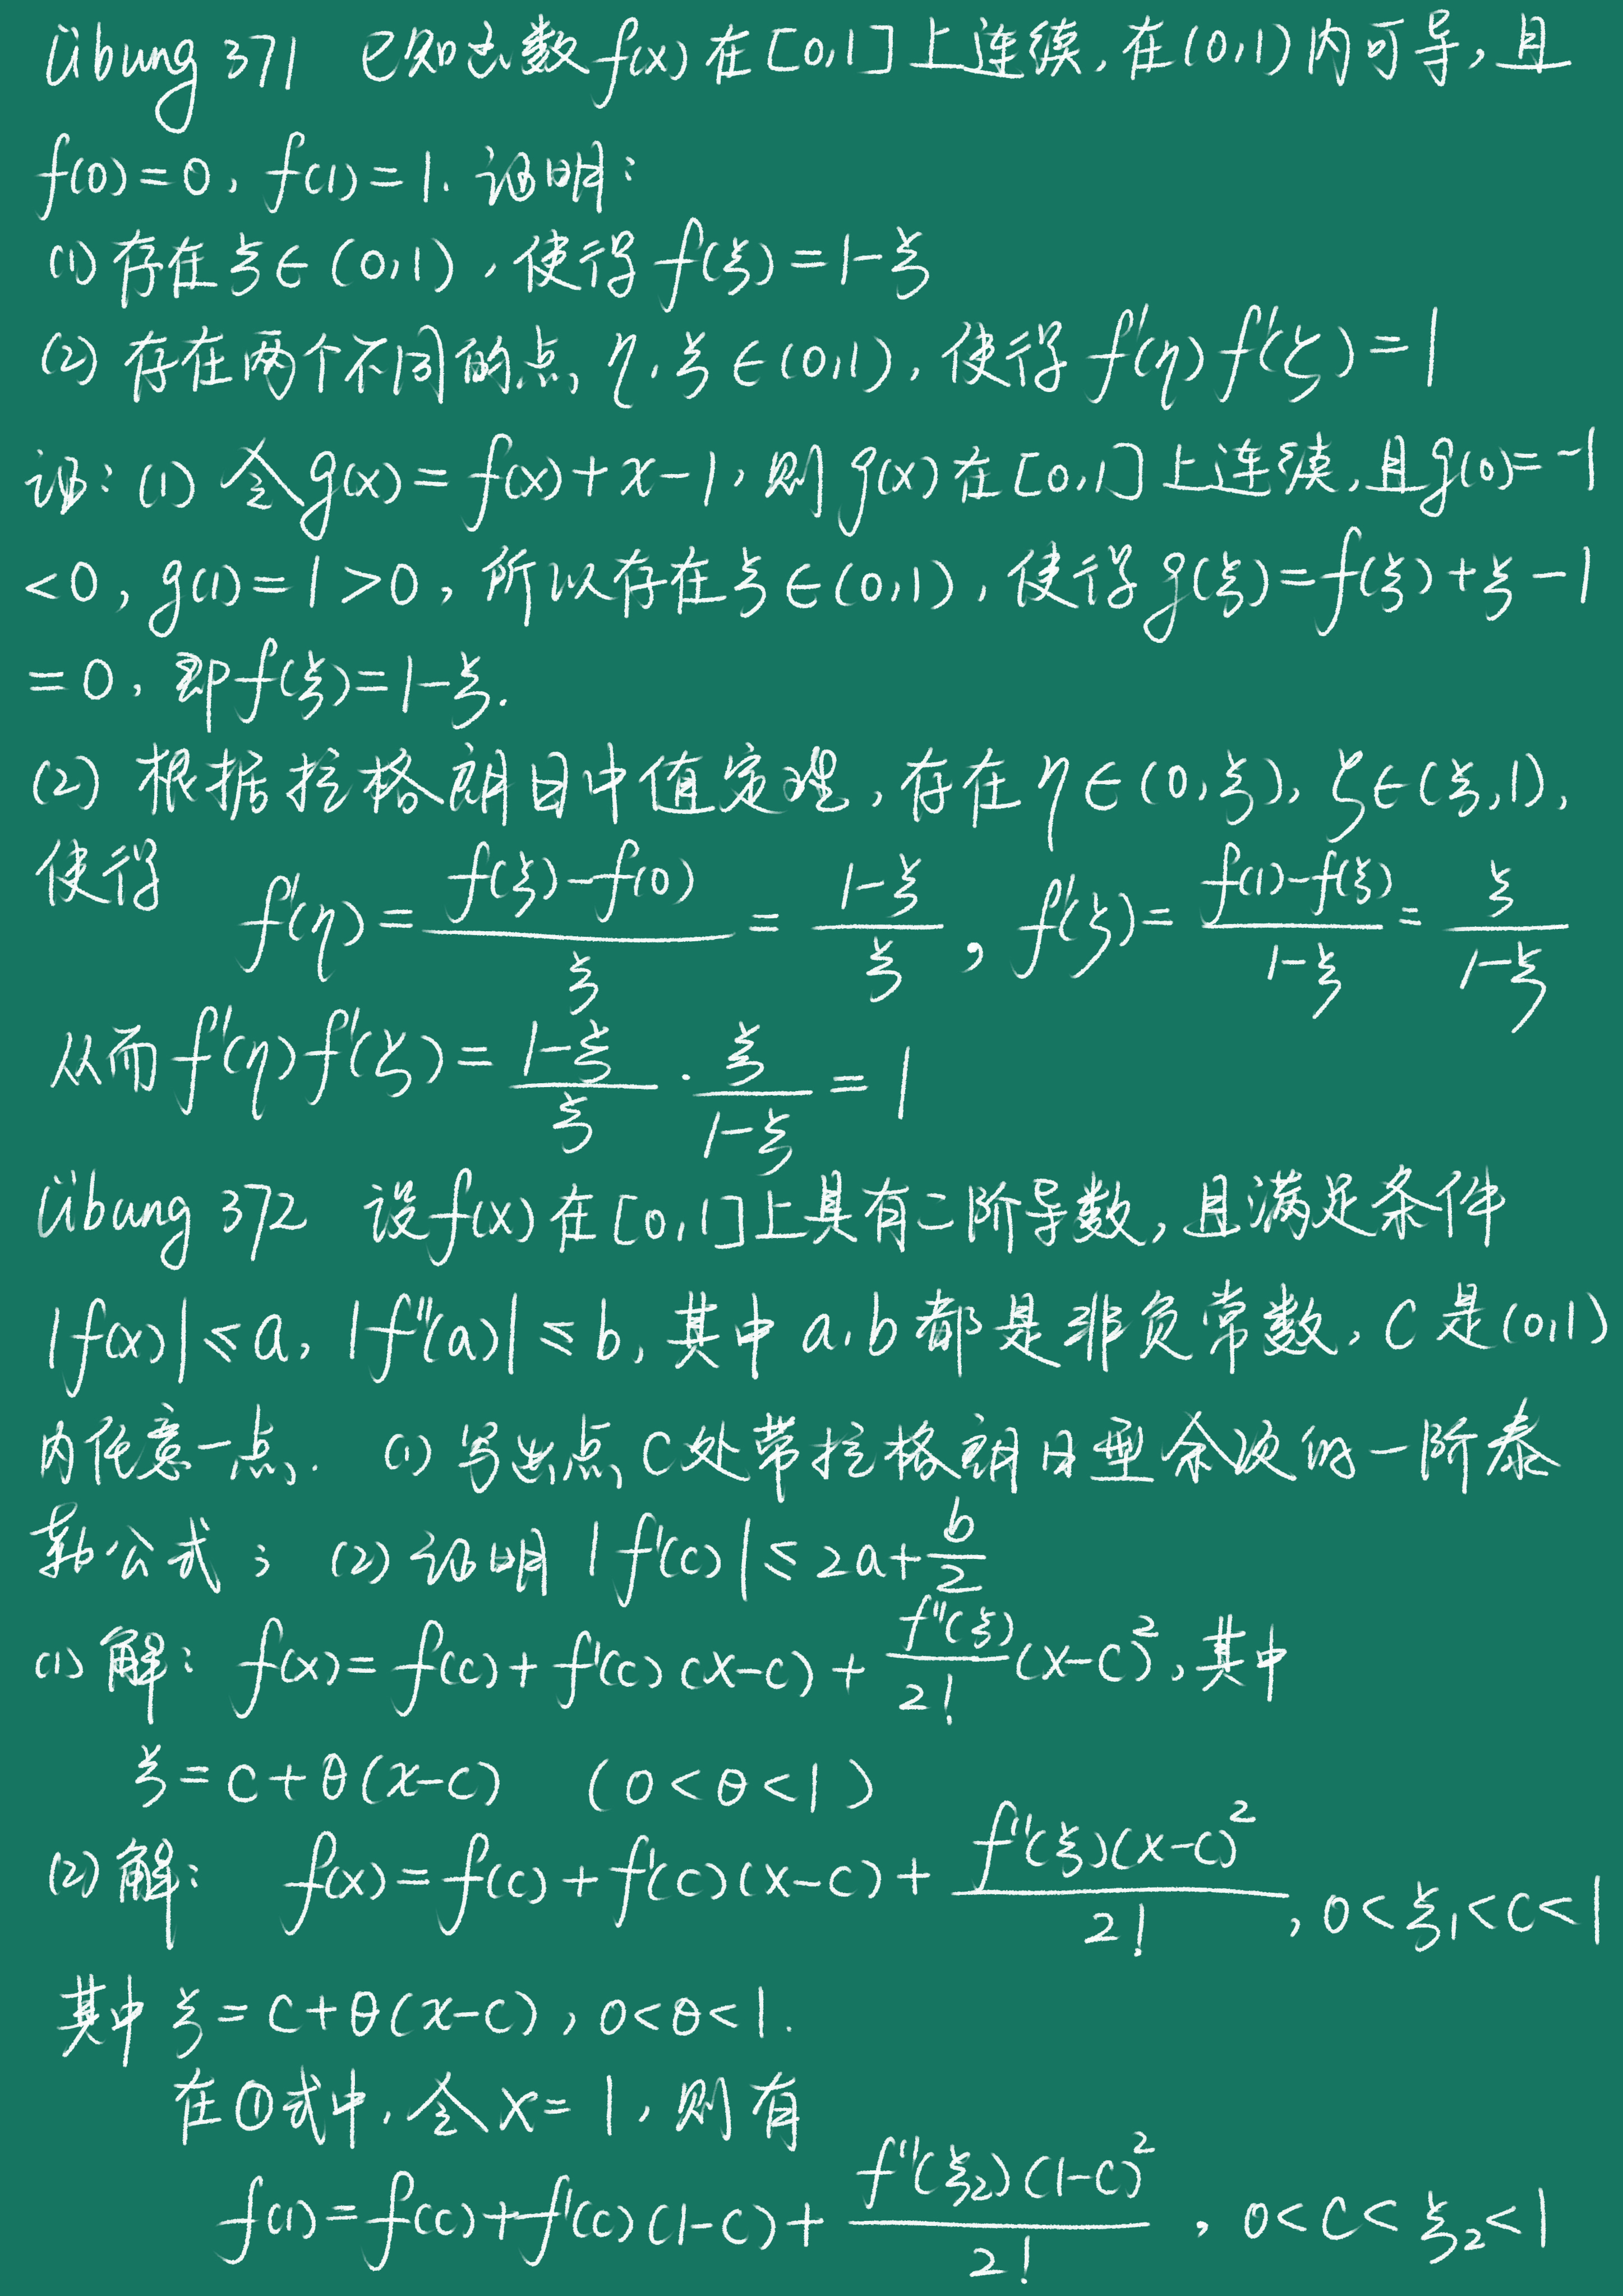 Übung 371 已知函数f(x)在[0,1]上连续,在(0,1)内可导,且
f(0)=0, f(1)=1. 证明:
(1) 存在ξ∈(0,1),使得 f(ξ)=1-ξ
(2) 存在两个不同的点 η,ξ∈(0,1),使得 f'(η)f'(ζ)=1
证:(1) 令g(x)=f(x)+x-1,则g(x)在[0,1]上连续,且g(0)=-1
<0, g(1)=1>0, 所以存在ξ∈(0,1),使得g(ξ)=f(ξ)+ξ-1
=0,即f(ξ)=1-ξ.
(2) 根据拉格朗日中值定理,存在η∈(0,ξ), ζ∈(ξ,1),
使得 f'(η)=\frac{f(ξ)-f(0)}{ξ}=\frac{1-ξ}{ξ}, f'(ζ)=\frac{f(1)-f(ξ)}{1-ξ}=\frac{ξ}{1-ξ}
从而f'(η)f'(ζ)=\frac{1-ξ}{ξ}·\frac{ξ}{1-ξ}=1
Übung 372 设f(x)在[0,1]上具有二阶导数,且满足条件
|f(x)|≤a, |f''(a)|≤b, 其中a,b都是非负常数, C是(0,1)
内任意一点. (1) 写出点C处带拉格朗日型余项的一阶泰
勒公式; (2) 证明 |f'(c)|≤2a+\frac{b}{2}
(1) 解: f(x)=f(c)+f'(c)(x-c)+\frac{f''(ξ)}{2!}(x-c)²,其中
ξ=c+θ(x-c) (0<θ<1)
(2) 解: f(x)=f(c)+f'(c)(x-c)+\frac{f''(ξ)(x-c)²}{2!}, 0<ξ₁<c<1
其中ξ=c+θ(x-c), 0<θ<1.
在①式中,令x=1,则有
f(1)=f(c)+f'(c)(1-c)+\frac{f''(ξ₂)(1-c)²}{2!}, 0<c<ξ₂<1